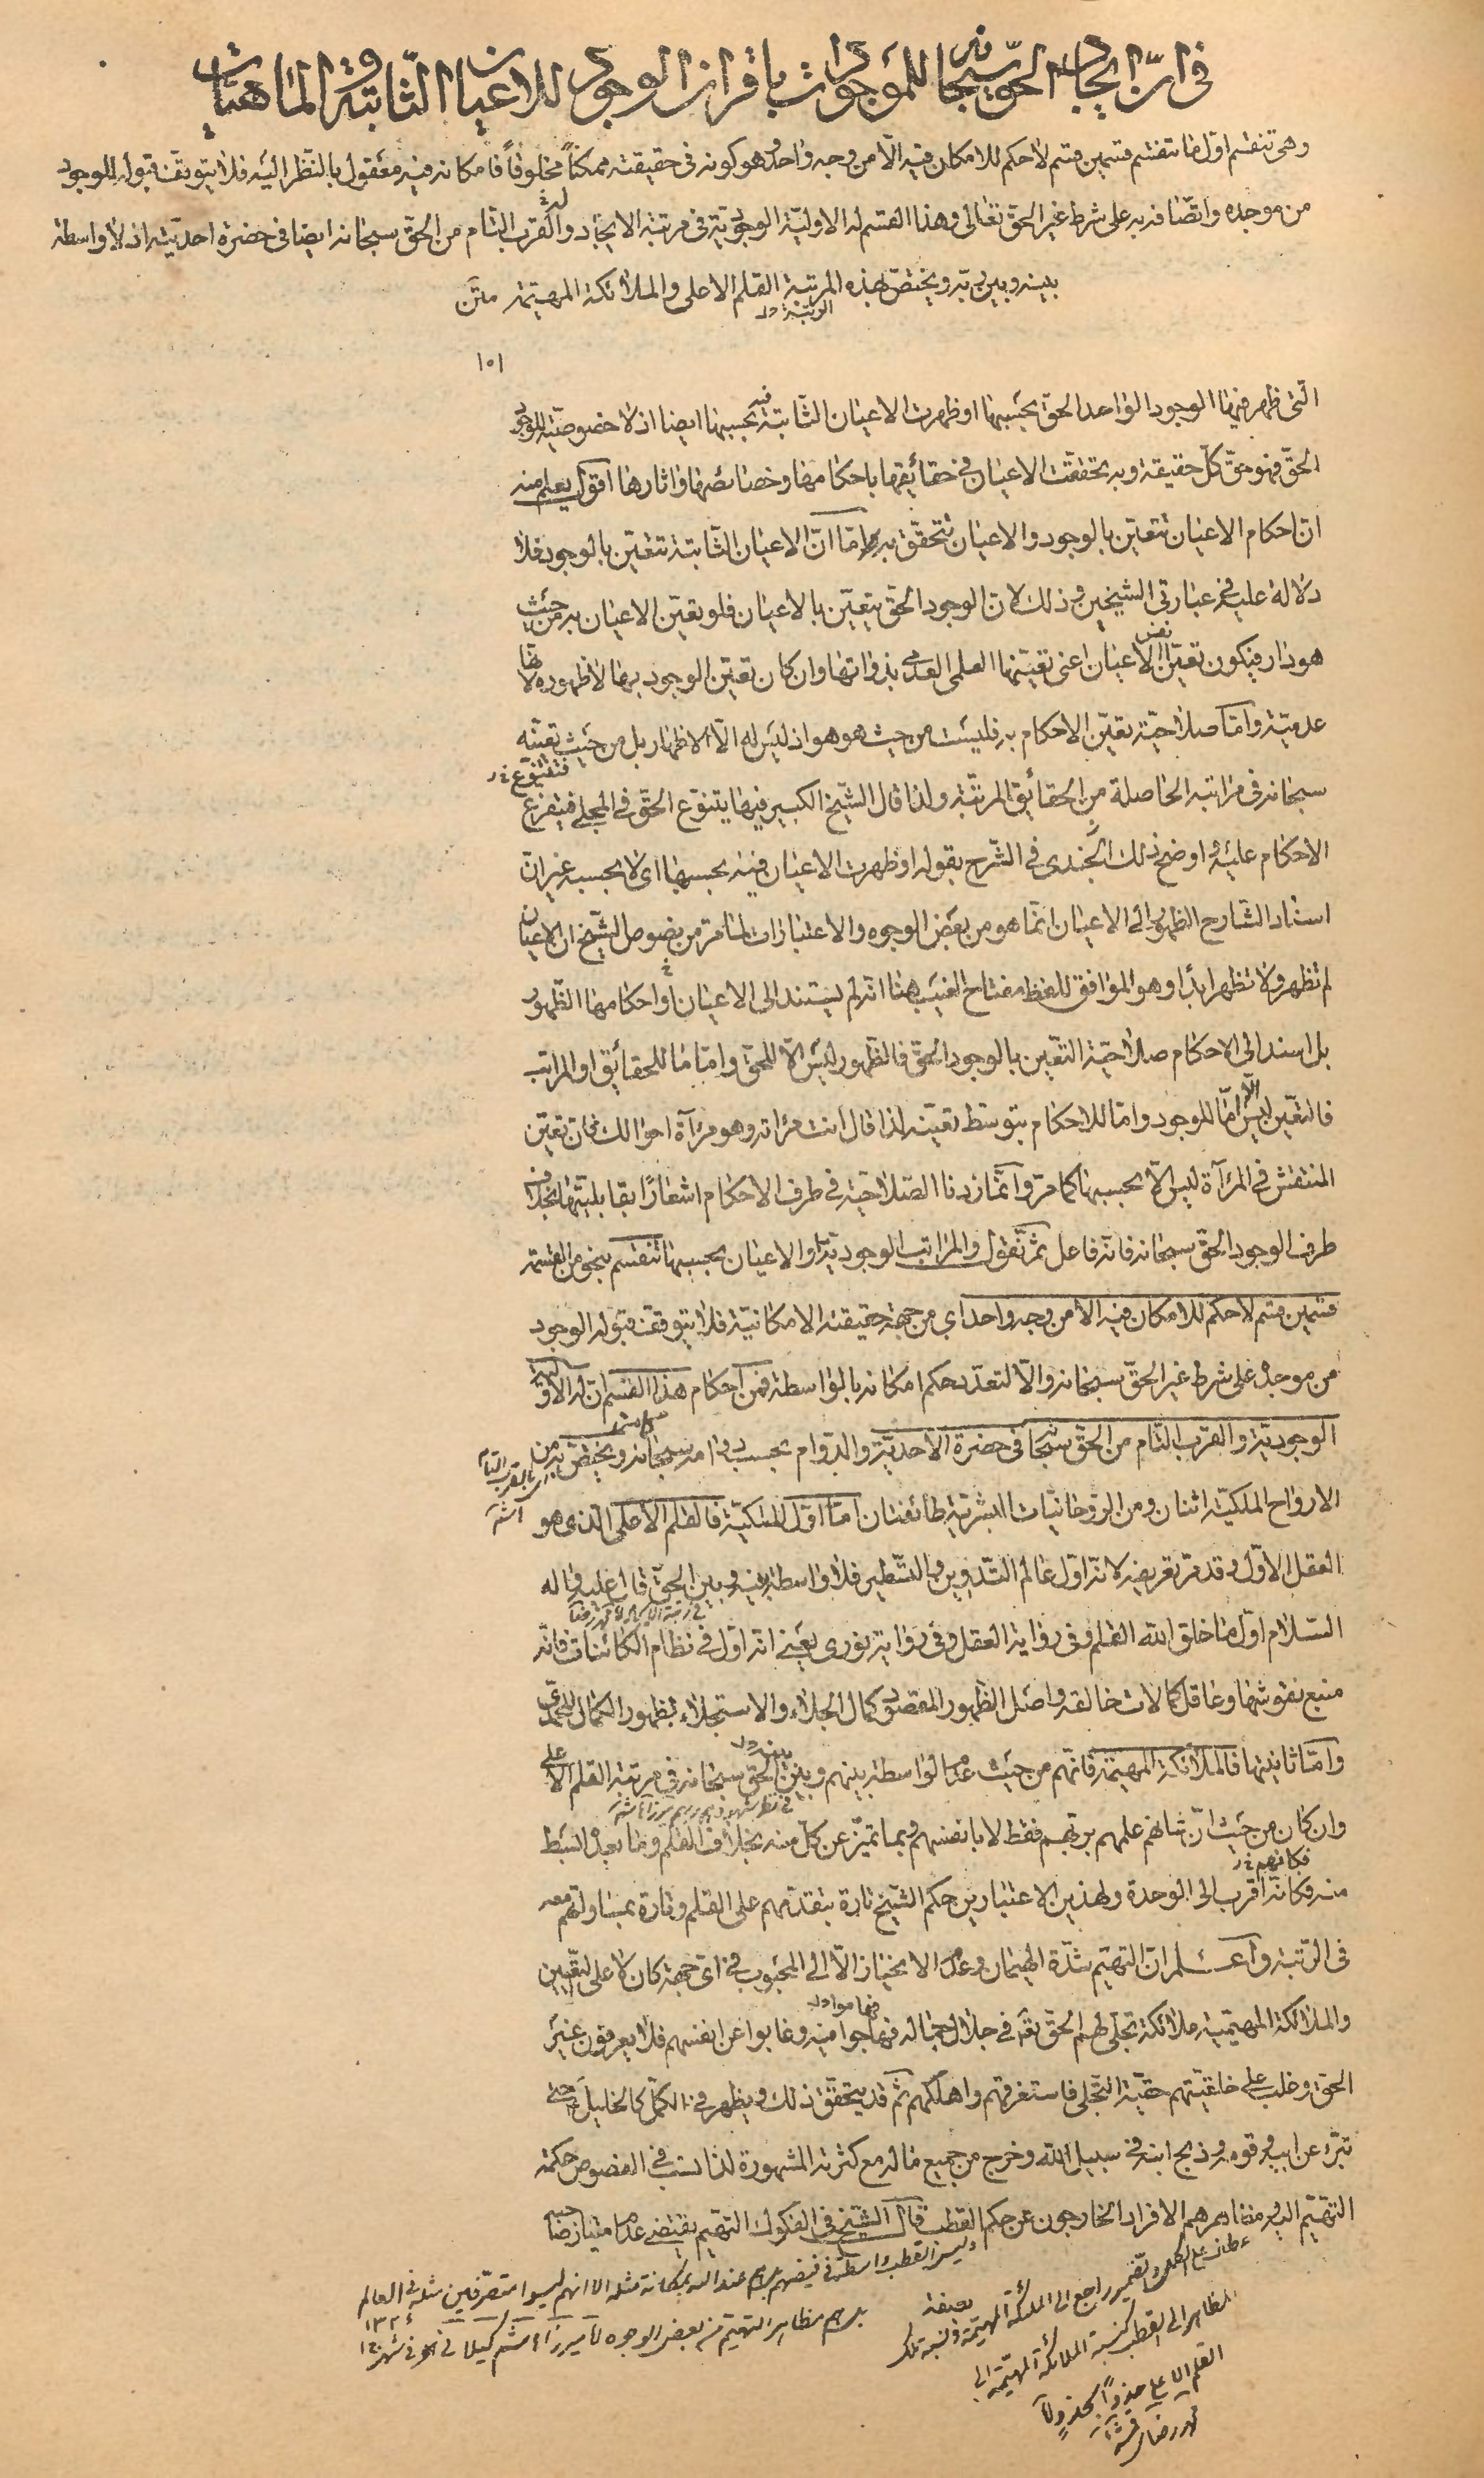 فى انّ ايجاد الحقّ سبحانه للموجودات باقران الوجود للاعيان الثّابتة و الماهيّات
وهى تنقسم اوّل ما تنقسم قسمين قسم لا حكم للامكان فيه الّا من وجه واحد وهو كونه فى حقيقته ممكناً مخلوقاً فامكانه فيه معقول بالنّظر اليه فلا يتوقّف قبوله للوجود
من موجده واتّصافه به على شرط غير الحقّ تعالى وهذا القسم له الاوليّة الوجوديّة فى مرتبة الايجاد وله القرب التّام من الحقّ سبحانه ايضا فى حضرة احديّته اذ لا واسطة
بينه وبين ربّه ويختصّ بهذه المرتبة القلم الاعلى والملائكة المهيّمة متن
الرتبة ول
١٥١
الّتى ظهر فيها الوجود الواحد الحقّ بحسبها او ظهرت الاعيان الثّابتة فيه بحسبها ايضا اذ لا خصوصيّة للوجود
الحقّ فهو حقّ كلّ حقيقة وبه تحقّقت الاعيان فى حقائقها باحكامها وخصائصها واثارها اقول يعلم منه
انّ احكام الاعيان تتعيّن بالوجود والاعيان تتحقّق به وامّا انّ الاعيان الثّابتة تتعيّن بالوجود فلا
دلالة عليه فى عبارتى الشيخين وذلك لانّ الوجود الحقّ يتعيّن بالاعيان فلو تعيّن الاعيان به من حيث
هو دار فيكون تعيّن نفس الاعيان اعنى تعيّنها العلمى العدمى بذواتها وان كان تعيّن الوجود بها لا ظهوره لانّها
عدميّة وامّا صلاحيّة تعيّن الاحكام به فليست من حيث هو هو اذ ليس له الّا الاظهار بل من حيث تعيّنه
سبحانه فى مراتبه الحاصلة من الحقائق المرتّبة ولذا قال الشّيخ الكبير فيها يتنوّع الحقّ فى المجلى فيتفرع
فتتنوّع خ ر
الاحكام عليه واوضح ذلك الجندى فى الشّرح بقوله او ظهرت الاعيان فيه بحسبها اى لا بحسبه غير انّ
اسناد الشّارح الظهور الى الاعيان انّما هو من بعض الوجوه والاعتبارات لما مرّ من نصوص الشّيخ ان الاعيان
لم تظهر ولا تظهر ابدا وهو الموافق للفظ مفتاح الغيب هنا انّه لم يستند الى الاعيان واحكامها الظّهور
بل اسند الى الاحكام صلاحيّة التّعيّن بالوجود الحقّ فالظّهور ليس الّا للحقّ وامّا ما للحقائق او المراتب
فالتعيّن ليس الّا امّا للوجود وامّا للاحكام بتوسّط تعيّنه لذا قال انت مراته وهو مرآة احوالك فانّ تعيّن
المنتقش فى المرآة ليس الّا بحسبها كما مرّ وانّما زدنا الصّلاحيّة فى طرف الاحكام اشعارًا بقابليّتها بخلاف
طرف الوجود الحقّ سبحانه فانّه فاعل ثمّ نقول والمراتب الوجوديّة او الاعيان بحسبها تنقسم بنحو من القسمة
قسمين قسم لا حكم للامكان فيه الّا من وجه واحد اى من جهة حقيقته الامكانيّة فلا يتوقّف قبوله الوجود
من موجده على شرط غير الحقّ سبحانه والّا لتعدّد حكم امكانه بالواسطة فمن احكام هذا القسم انّ له الاوليّة
الوجوديّة والقرب التّام من الحقّ سبحانه فى حضرة الاحديّة والدّوام بحسب دوامه سبحانه ويختصّ به من
اى بالقرب التّام
الارواح الملكيّة اثنان ومن الرّوحانيّات البشريّة طائفتان امّا اوّل الملكيّة فالقلم الاعلى الّذى هو
العقل الاوّل وقد مرّ تعريفه لانّه اوّل عالم التّدوين والتّسطير فلا واسطة بينه وبين الحقّ قال عليه وآله
السّلام اوّل ما خلق الله القلم وفى رواية العقل وفى رواية نورى يعنى انّه اوّل فى نظام الكائنات فانّه
منبع نقوشها وعاقل كمالات خالقه واصل الظّهور المقصود كمال الجلاء والاستجلاء لظهور الكمال المحمّدى
وامّا ثانيتها فالملائكة المهيّمة فانّهم من حيث عدم الواسطة بينهم وبين الحقّ سبحانه فى مرتبة القلم الاعلى
وان كان من حيث انّ شانهم علمهم بربّهم فقط لا بانفسهم وبما تميّز عن كلّ منه بخلاف القلم وما بعده البسط
فكانهم خ ر
منه فكانّه اقرب الى الوحدة ولهذين الاعتبارين حكم الشّيخ تارة بتقدّمهم على القلم وتارة بمساواتهم معه
فى الرّتبة واعلم انّ التهيّم شدّة الهيمان وعدم الانحياز الّا الى المحبوب فى اىّ جهة كان لا على التّعيين
والملائكة المهيّمة ملائكة تجلّى لهم الحقّ تعه فى جلال جماله فهاموا فيه وغابوا عن انفسهم فلا يعرفون غير
الحقّ وغلب على خلقيّتهم حقّيّة التّجلّى فاستغرقهم واهلكهم ثمّ قد يتحقّق ذلك ويظهر فى الكمّل كالخليل حتى
تبرّء عن ابيه وقومه وذبح ابنه فى سبيل الله وخرج من جميع ماله مع كثرته المشهورة لذا نسب فى الفصوص حكمة
التهيّم اليه ومظاهرهم الافراد الخارجون عن حكم القطب قال الشّيخ فى الفكوك التهيّم يقتضى عدم امتياز صاحبه
وليس القطب واسطة فى فيضهم بل هم عند الله بمكانة مثله الا انهم ليسوا متصرّفين مثله فى العالم
بل هم مظاهر التهيّم من بعض الوجوه لاميرزا هاشم كيلانى
عطف على الكمل والضمير راجع الى الملائكة المهيّمة ونسبة تلك
المظاهر الى القطب كنسبة الملائكة المهيّمة الى
القلم الاعلى حذواً بحذو